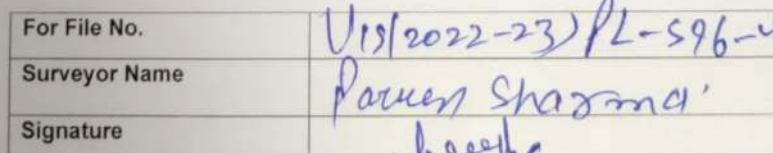 For File No. VIS(2022-23)PL-596-
Surveyor Name Parveen Sharma
Signature